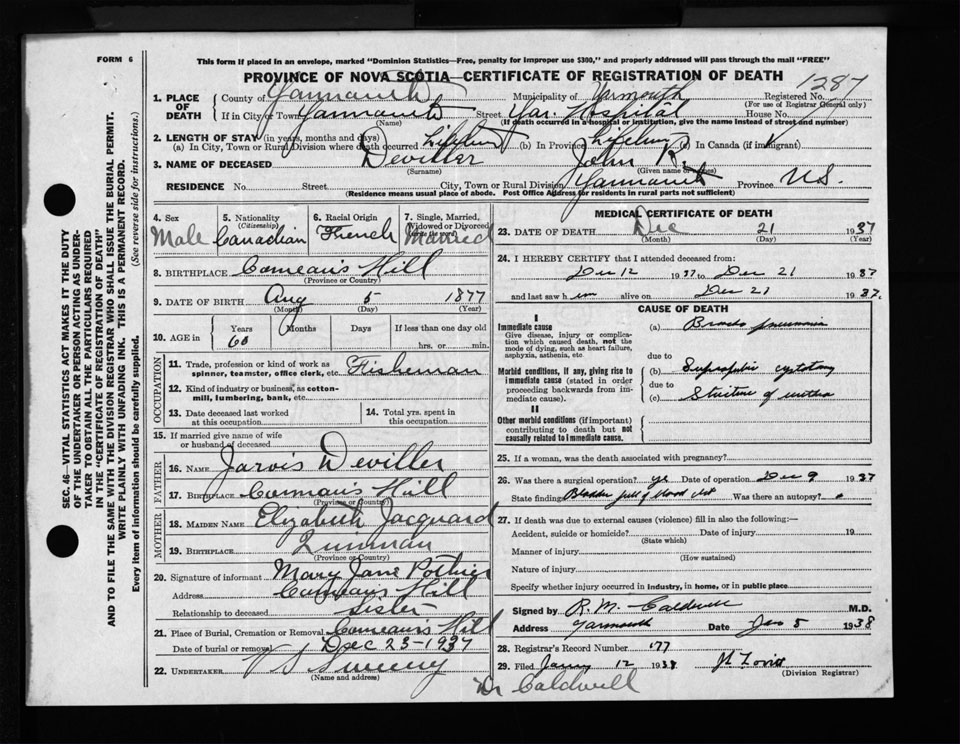 FORM 6
This form if placed in an envelope, marked "Dominion Statistics—Free, penalty for improper use $300," and properly addressed will pass through the mail "FREE"
PROVINCE OF NOVA SCOTIA—CERTIFICATE OF REGISTRATION OF DEATH
1287
1. PLACE OF DEATH
County of Yarmouth Municipality of Yarmouth Registered No.
(For use of Registrar General only)
If in City or Town Yarmouth Street Yar. Hospital House No.
(Name) (If death occurred in a hospital or institution, give the name instead of street and number)
2. LENGTH OF STAY (in years, months and days)
(a) In City, Town or Rural Division where death occurred Lifetime (b) In Province Lifetime (c) In Canada (if immigrant)
3. NAME OF DECEASED Deviller John R.
(Surname) (Given name or names)
RESIDENCE No. Street City, Town or Rural Division Yarmouth Province N.S.
(Residence means usual place of abode. Post Office address for residents in rural parts not sufficient)
4. Sex Male
5. Nationality (Citizenship) Canadian
6. Racial Origin French
7. Single, Married, Widowed or Divorced (write the word) Married
8. BIRTHPLACE Comeau's Hill
(Province or Country)
9. DATE OF BIRTH Aug 5 1877
(Month) (Day) (Year)
10. AGE in Years 60 Months Days If less than one day old
hrs. or min.
OCCUPATION
11. Trade, profession or kind of work as spinner, teamster, office clerk, etc. Fisheman
12. Kind of industry or business, as cotton-mill, lumbering, bank, etc.
13. Date deceased last worked at this occupation
14. Total yrs. spent in this occupation
15. If married give name of wife or husband of deceased
FATHER
16. NAME Jarvis Deviller
17. BIRTHPLACE Comeau's Hill
(Province or Country)
MOTHER
18. MAIDEN NAME Elizabeth Jacquard
19. BIRTHPLACE Quinan
(Province or Country)
20. Signature of informant Mary Jane Pothier
Address Comeau's Hill
Relationship to deceased Sister
21. Place of Burial, Cremation or Removal Comeau's Hill
Date of burial or removal Dec 23-1937
22. UNDERTAKER V S Sweeny
(Name and address)
MEDICAL CERTIFICATE OF DEATH
23. DATE OF DEATH Dec 21 1937
(Month) (Day) (Year)
24. I HEREBY CERTIFY that I attended deceased from:
Dec 12 1937 to Dec 21 1937
and last saw him alive on Dec 21 1937.
CAUSE OF DEATH
I
Immediate cause
Give disease, injury or complication which caused death, not the mode of dying, such as heart failure, asphyxia, asthenia, etc.
(a) Broncho pneumonia
due to
Morbid conditions, if any, giving rise to immediate cause (stated in order proceeding backwards from immediate cause).
(b) Suprapubic cystotomy
due to
(c) Stricture of urethra
II
Other morbid conditions (if important) contributing to death but not causally related to immediate cause.
25. If a woman, was the death associated with pregnancy?
26. Was there a surgical operation? yes Date of operation Dec 9 1937
State finding Bladder full of blood clot Was there an autopsy?
27. If death was due to external causes (violence) fill in also the following:—
Accident, suicide or homicide? Date of injury 19
(State which)
Manner of injury
(How sustained)
Nature of injury
Specify whether injury occurred in industry, in home, or in public place
Signed by R. M. Caldwell M.D.
Address Yarmouth Date Jan 5 1938
28. Registrar's Record Number 177
29. Filed Jany 12 1938
(Division Registrar)
Dr Caldwell
SEC. 46—VITAL STATISTICS ACT MAKES IT THE DUTY
OF THE UNDERTAKER OR PERSON ACTING AS UNDER-
TAKER TO OBTAIN ALL THE PARTICULARS REQUIRED
IN THE "CERTIFICATE OF REGISTRATION OF DEATH"
AND TO FILE THE SAME WITH THE DIVISION REGISTRAR WHO SHALL ISSUE THE BURIAL PERMIT.
WRITE PLAINLY WITH UNFADING INK. THIS IS A PERMANENT RECORD.
Every item of information should be carefully supplied. (See reverse side for instructions.)